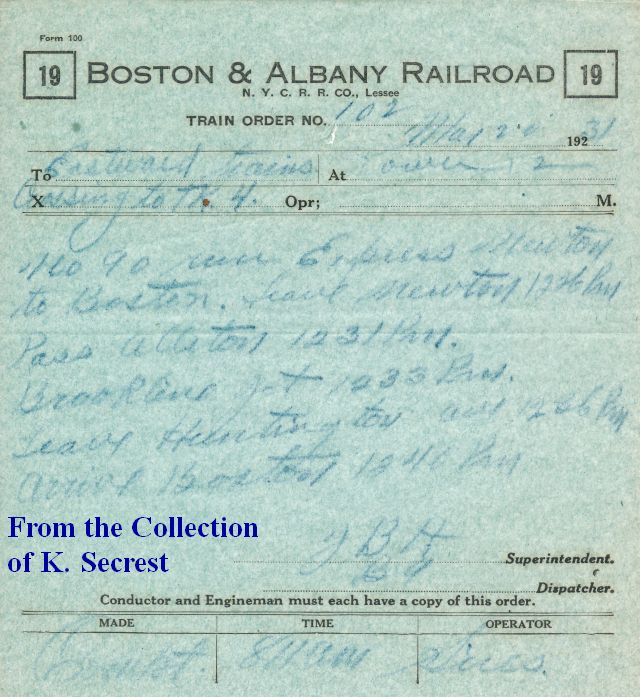 Form 100
19 BOSTON & ALBANY RAILROAD 19
N. Y. C. R. R. CO., Lessee
TRAIN ORDER NO. 102
May 20 192 31
To Eastward trains At Tower 2
X Crossing to TK 4. Opr; M.
No 90 run Express Newton
to Boston. Leave Newton 1226 Pm
Pass Allston 1231 Pm.
Brookline Jct 1233 Pm.
Leave Huntington ave 1236 Pm
arrive Boston 1240 Pm
From the Collection
of K. Secrest
J B H Superintendent.
Dispatcher.
Conductor and Engineman must each have a copy of this order.
MADE TIME OPERATOR
am